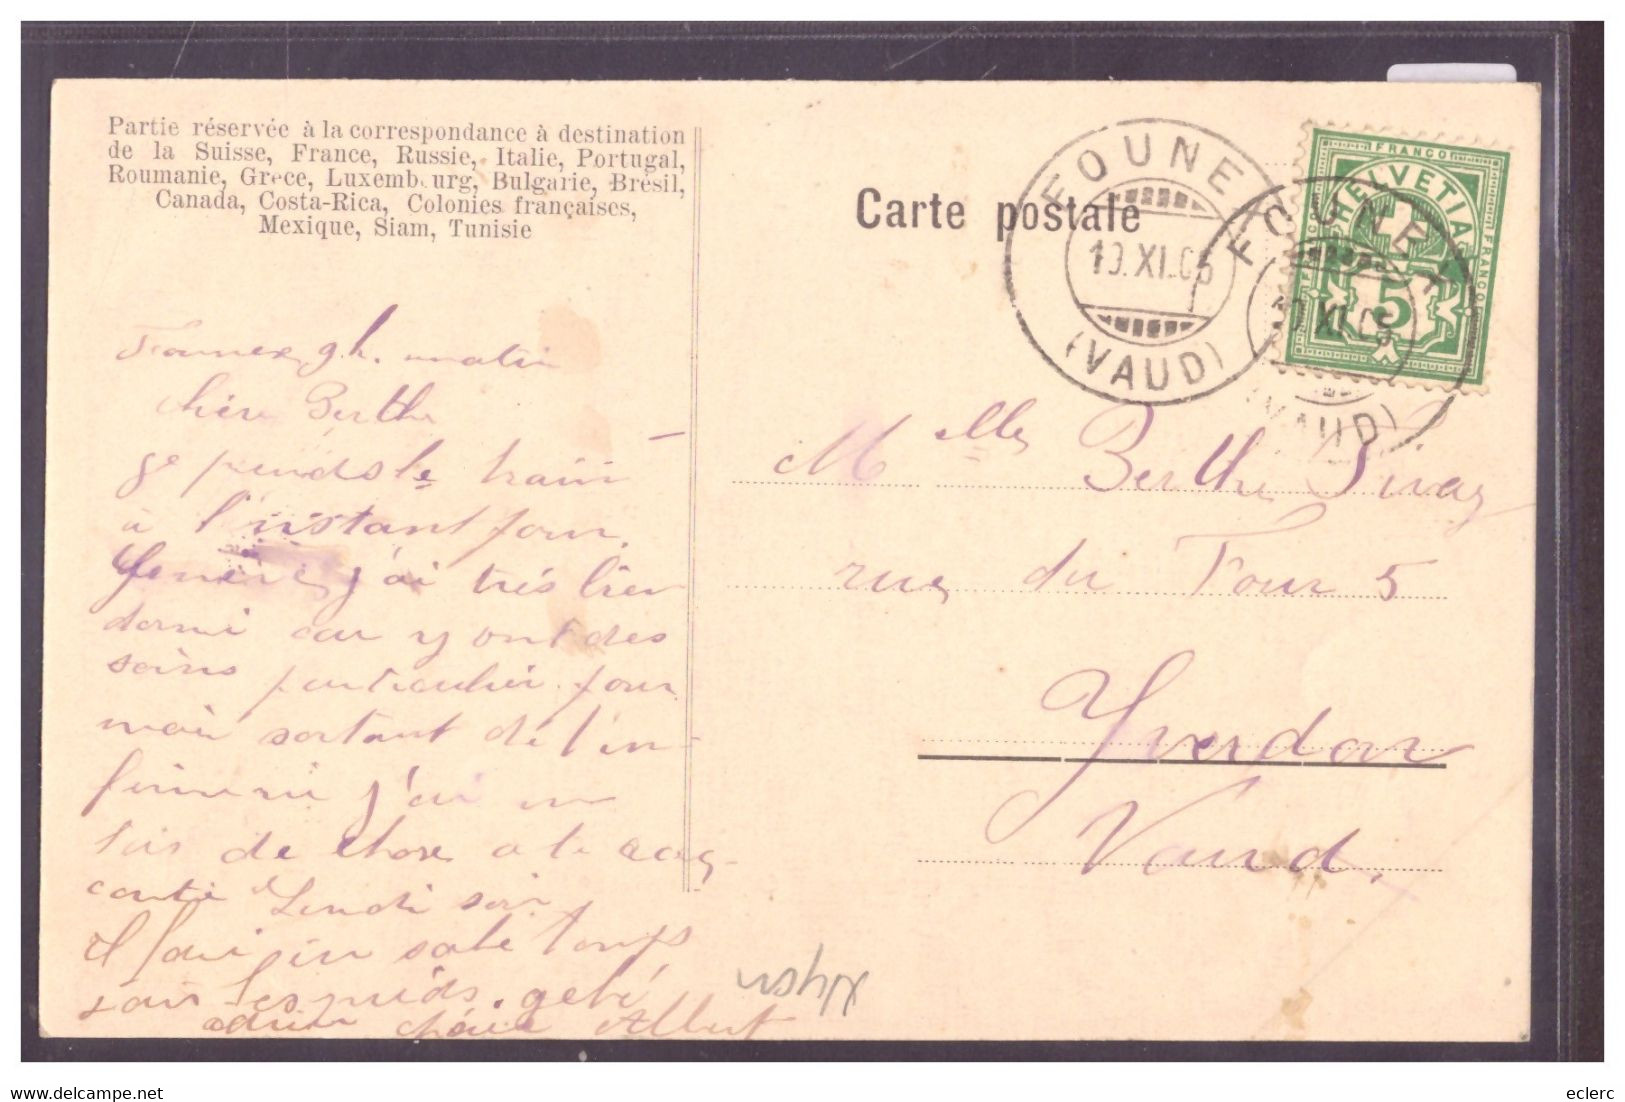 Partie réservée à la correspondance à destination
de la Suisse, France, Russie, Italie, Portugal,
Roumanie, Grèce, Luxembourg, Bulgarie, Brésil,
Canada, Costa-Rica, Colonies françaises,
Mexique, Siam, Tunisie
Carte postale
FOUNEX
10.XI.05
(VAUD)
FOUNEX
10.XI.05
(VAUD)
FRANCO
HELVETIA
FRANCO
FRANCO
5
Founex 9 h. matin
chère Berthe
Je prends le train
à l'instant pour
Genève j'ai très bien
dormi car y ont des
soins particulier pour
moi sortant de l'in-
firmerie j'ai un
de chose a te
conté Lundi soir
Il fait un sale temps
sous les pieds. gelé
adieu chérie Albert
Melle Berthe
rue du Four 5
Yverdon
Vaud.
Nyon
eclerc